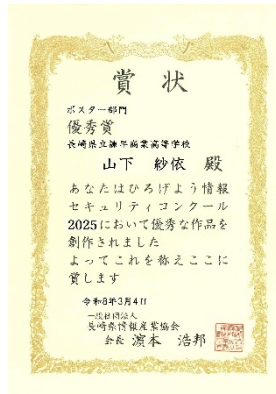 賞状
ポスター部門
優秀賞
長崎県立諫早商業高等学校
山下 紗依 殿
あなたはひろげよう情報
セキュリティコンクール
2025において優秀な作品を
創作されました
よってこれを称えここに
賞します
令和8年3月4日
一般社団法人
長崎県情報産業協会
会長 濵本 浩邦